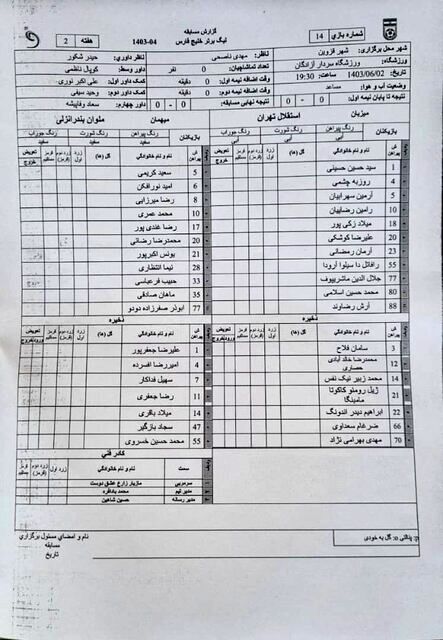 شماره بازی : 14
گزارش مسابقه
لیگ برتر خلیج فارس 04-1403
هفته : 2
شهر محل برگزاری: شهر قزوین
ناظر: مهدی ناصحی
ناظر داوری: حیدر شکور
ورزشگاه: ورزشگاه سردار آزادگان
تعداد تماشاچیان: 0 نفر
داور وسط: کوپال ناظمی
تاریخ: 1403/06/02 ساعت: 19:30
وقت اضافه نیمه اول: 0 دقیقه
کمک داور اول: علی اکبر نوری
وضعیت آب و هوا: مساعد
وقت اضافه نیمه دوم: 0 دقیقه
کمک داور دوم: وحید سیفی
نتیجه تا پایان نیمه اول: 0 - 0
نتیجه نهایی مسابقه: 0 - 0
داور چهارم:
میزبان استقلال تهران
میهمان ملوان بندرانزلی
بازیکنان رنگ پیراهن آبی رنگ شورت آبی رنگ جوراب آبی
بازیکنان رنگ پیراهن سفید رنگ شورت سفید رنگ جوراب سفید
نام و نام خانوادگی گل (ها)
1 سید حسین حسینی
4 روزبه چشمی
5 آرمین سهرابیان
10 رامین رضاییان
18 میلاد زکی پور
20 علیرضا کوشکی
23 آرمان رمضانی
55 رافائل دا سیلوا آرودا
77 جلال الدین ماشریپوف
80 محمد حسین اسلامی
88 آرش رضاوند
5 سعید کریمی
6 امید نورافکن
8 رضا میرزایی
10 محمد عمری
17 رضا غندی پور
20 محمدرضا رضائی
21 یونس اکبرپور
28 نیما انتظاری
33 حبیب فرعباسی
35 ماهان صادقی
77 ابوذر صفرزاده دودو
ذخیره
3 سامان فلاح
12 محمدرضا خالد آبادی حصاری
14 محمد زبیر نیک نفس
21 ژیل رومئو کاکوتا مامبنگا
22 ابراهیم دیدر اندونگ
66 ضرغام سعداوی
70 مهدی بهرامی نژاد
ذخیره
1 علیرضا جعفرپور
4 امیررضا افسرده
7 سهیل فداکار
11 رضا جعفری
14 میلاد باقری
47 سجاد بازگیر
55 محمد حسین خسروی
کادر فنی
سمت نام و نام خانوادگی
سرمربی مازیار زارع عشق دوست
مدیر تیم
مدیر رسانه حسین شاهین
p: پنالتی o: گل به خودی
نام و امضای مسئول برگزاری
مسابقه
تاریخ